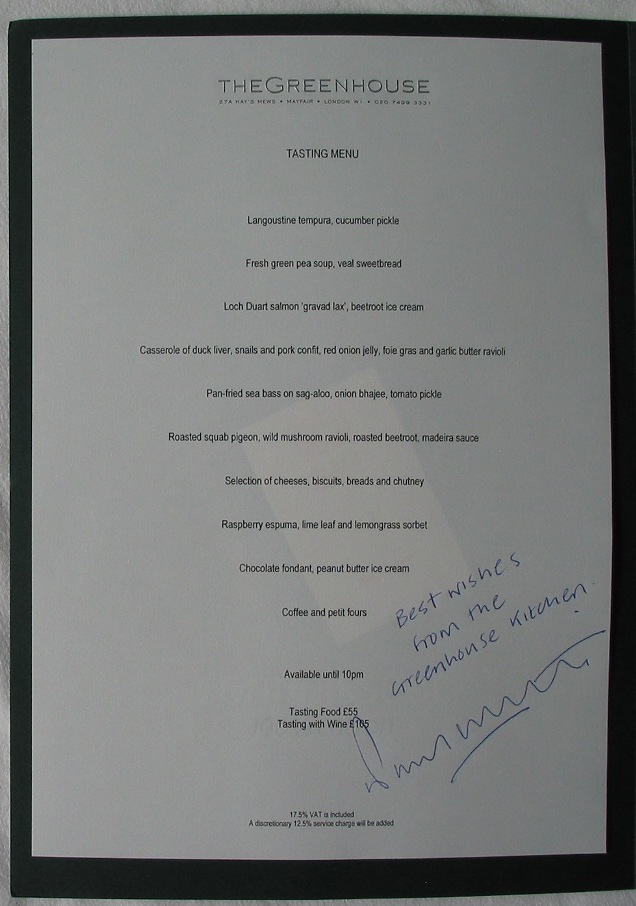 THE GREENHOUSE
27A HAY'S MEWS • MAYFAIR • LONDON W1 • 020 7499 3331
TASTING MENU
Langoustine tempura, cucumber pickle
Fresh green pea soup, veal sweetbread
Loch Duart salmon 'gravad lax', beetroot ice cream
Casserole of duck liver, snails and pork confit, red onion jelly, foie gras and garlic butter ravioli
Pan-fried sea bass on sag-aloo, onion bhajee, tomato pickle
Roasted squab pigeon, wild mushroom ravioli, roasted beetroot, madeira sauce
Selection of cheeses, biscuits, breads and chutney
Raspberry espuma, lime leaf and lemongrass sorbet
Chocolate fondant, peanut butter ice cream
Coffee and petit fours
Best wishes
from the
Greenhouse Kitchen.
Available until 10pm
Tasting Food £55
Tasting with Wine £105
17.5% VAT is included
A discretionary 12.5% service charge will be added